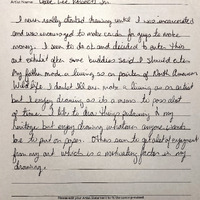 Artist Name: Dale Lee
I never really started drawing until I was incarcerated
and was encouraged to make cards for guys to make
money. I seem to do ok and decided to enter this
art exhibit after some buddies said I should enter.
My father made a living as an painter of North American
Wild life. I doubt I'll ever make a living as an artist
but I enjoy drawing as its a means to pass alot
of time. I like to draw things pertaining to my
heritage but enjoy drawing whatever anyone wants
me to put on paper. Others seem to get alot of enjoyment
from my art which is a motivating factor in my
drawing.